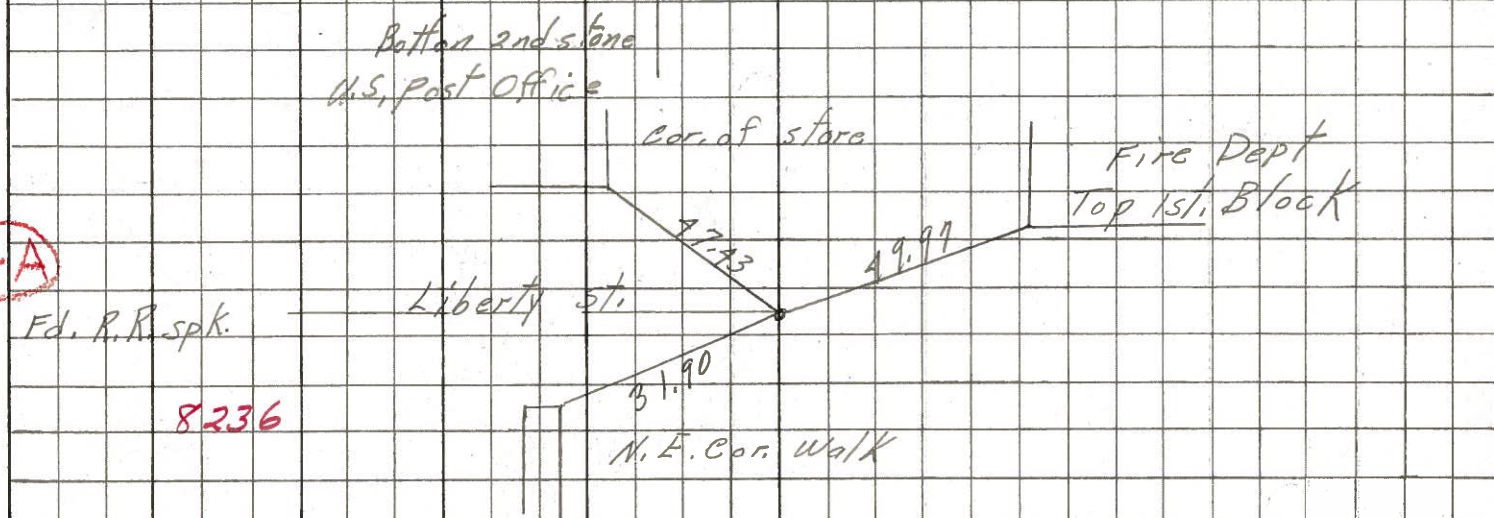 Botton 2nd stone
U.S. Post Office
Cor. of store
Fire Dept
Top 1st. Block
A
47.43
49.97
Liberty St.
Fd. R.R. spk.
31.90
8236
N.E. Cor. Walk